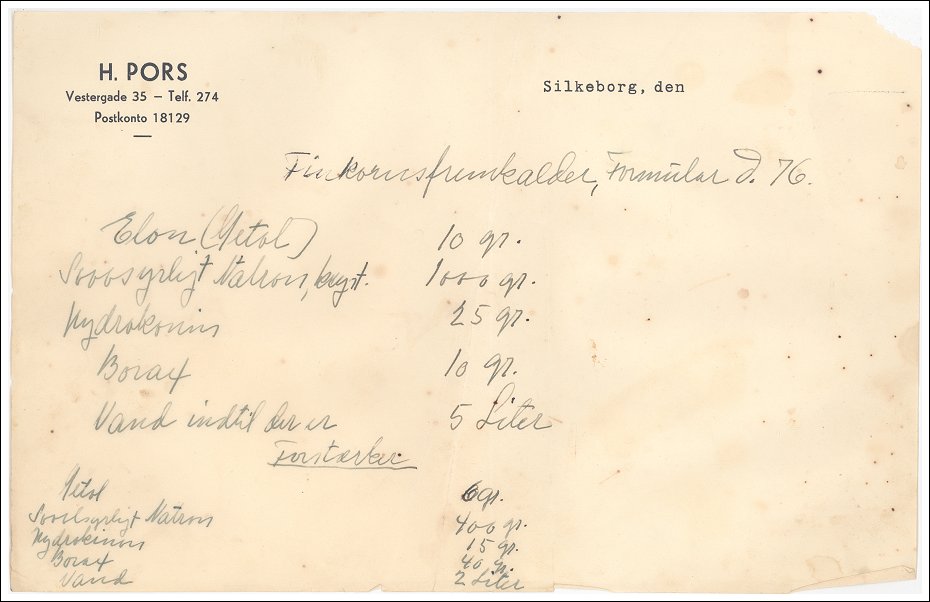 H. PORS
Vestergade 35 – Telf. 274
Postkonto 18129
Silkeborg, den
Finkornsfremkalder, Formular D. 76.
Elon (Metol) 10 gr.
Svovlsyrligt Natron, kryst. 1000 gr.
Hydrokinon 25 gr.
Borax 10 gr.
Vand indtil der er 5 Liter
Forstærker
Metol 6 gr.
Svovlsyrligt Natron 400 gr.
Hydrokinon 15 gr.
Borax 40 gr.
Vand 2 Liter